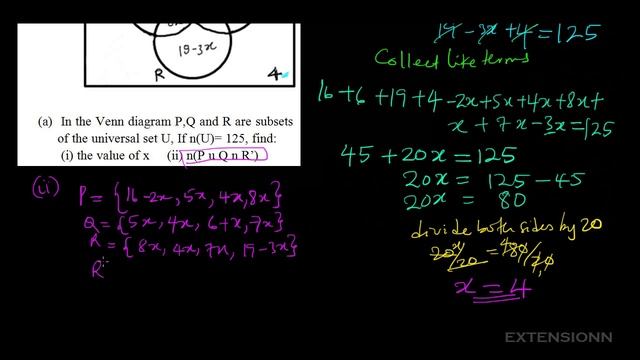 19-3x
R
4
(a) In the Venn diagram P,Q and R are subsets
of the universal set U, If n(U)= 125, find:
(i) the value of x (ii) n(P u Q n R')
19 - 3x + 4 = 125
Collect like terms
16 + 6 + 19 + 4 - 2x + 5x + 4x + 8x +
x + 7x - 3x = 125
45 + 20x = 125
20x = 125 - 45
20x = 80
divide both sides by 20
20x/20 = 80/20
x = 4
(ii) P = {16-2x, 5x, 4x, 8x}
Q = {5x, 4x, 6+x, 7x}
R = {8x, 4x, 7x, 19-3x}
R'
EXTENSIONN